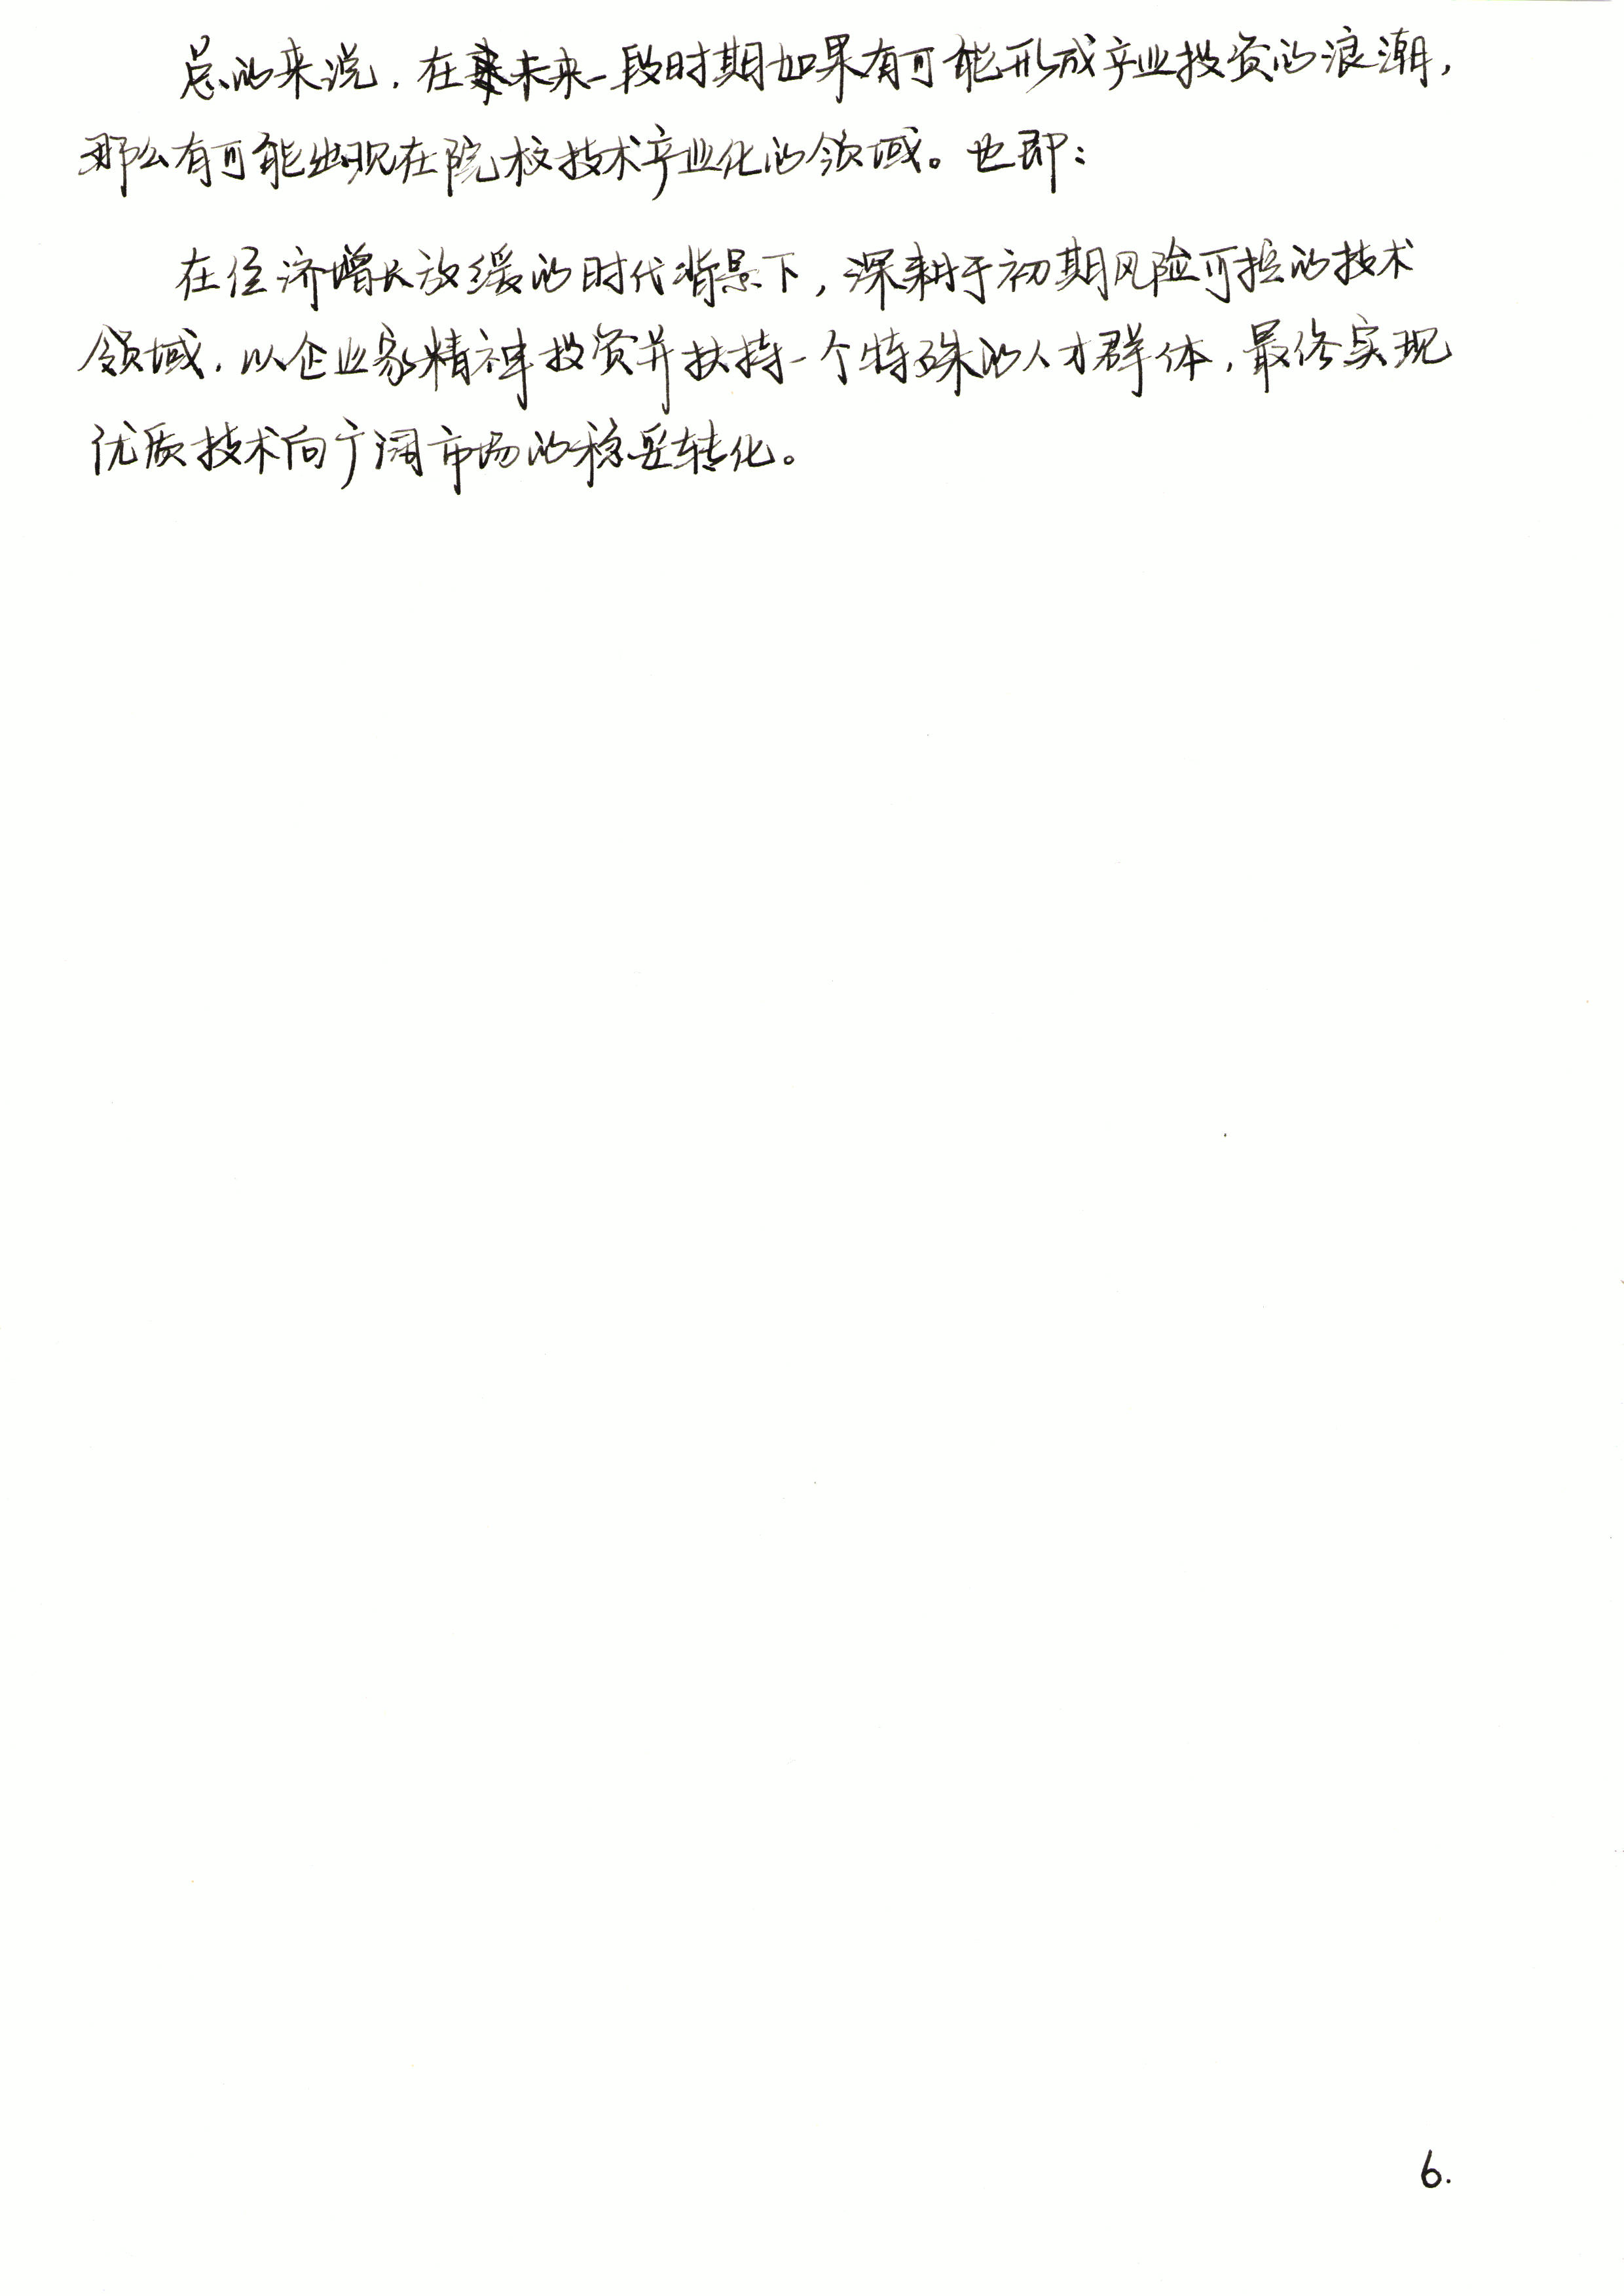 总的来说，在未来一段时期如果有可能形成产业投资的浪潮，
那么有可能出现在院校技术产业化的领域。也即：
在经济增长放缓的时代背景下，深耕于初期风险可控的技术
领域，以企业家精神投资并扶持一个特殊的人才群体，最终实现
优质技术向广阔市场的稳妥转化。
6.